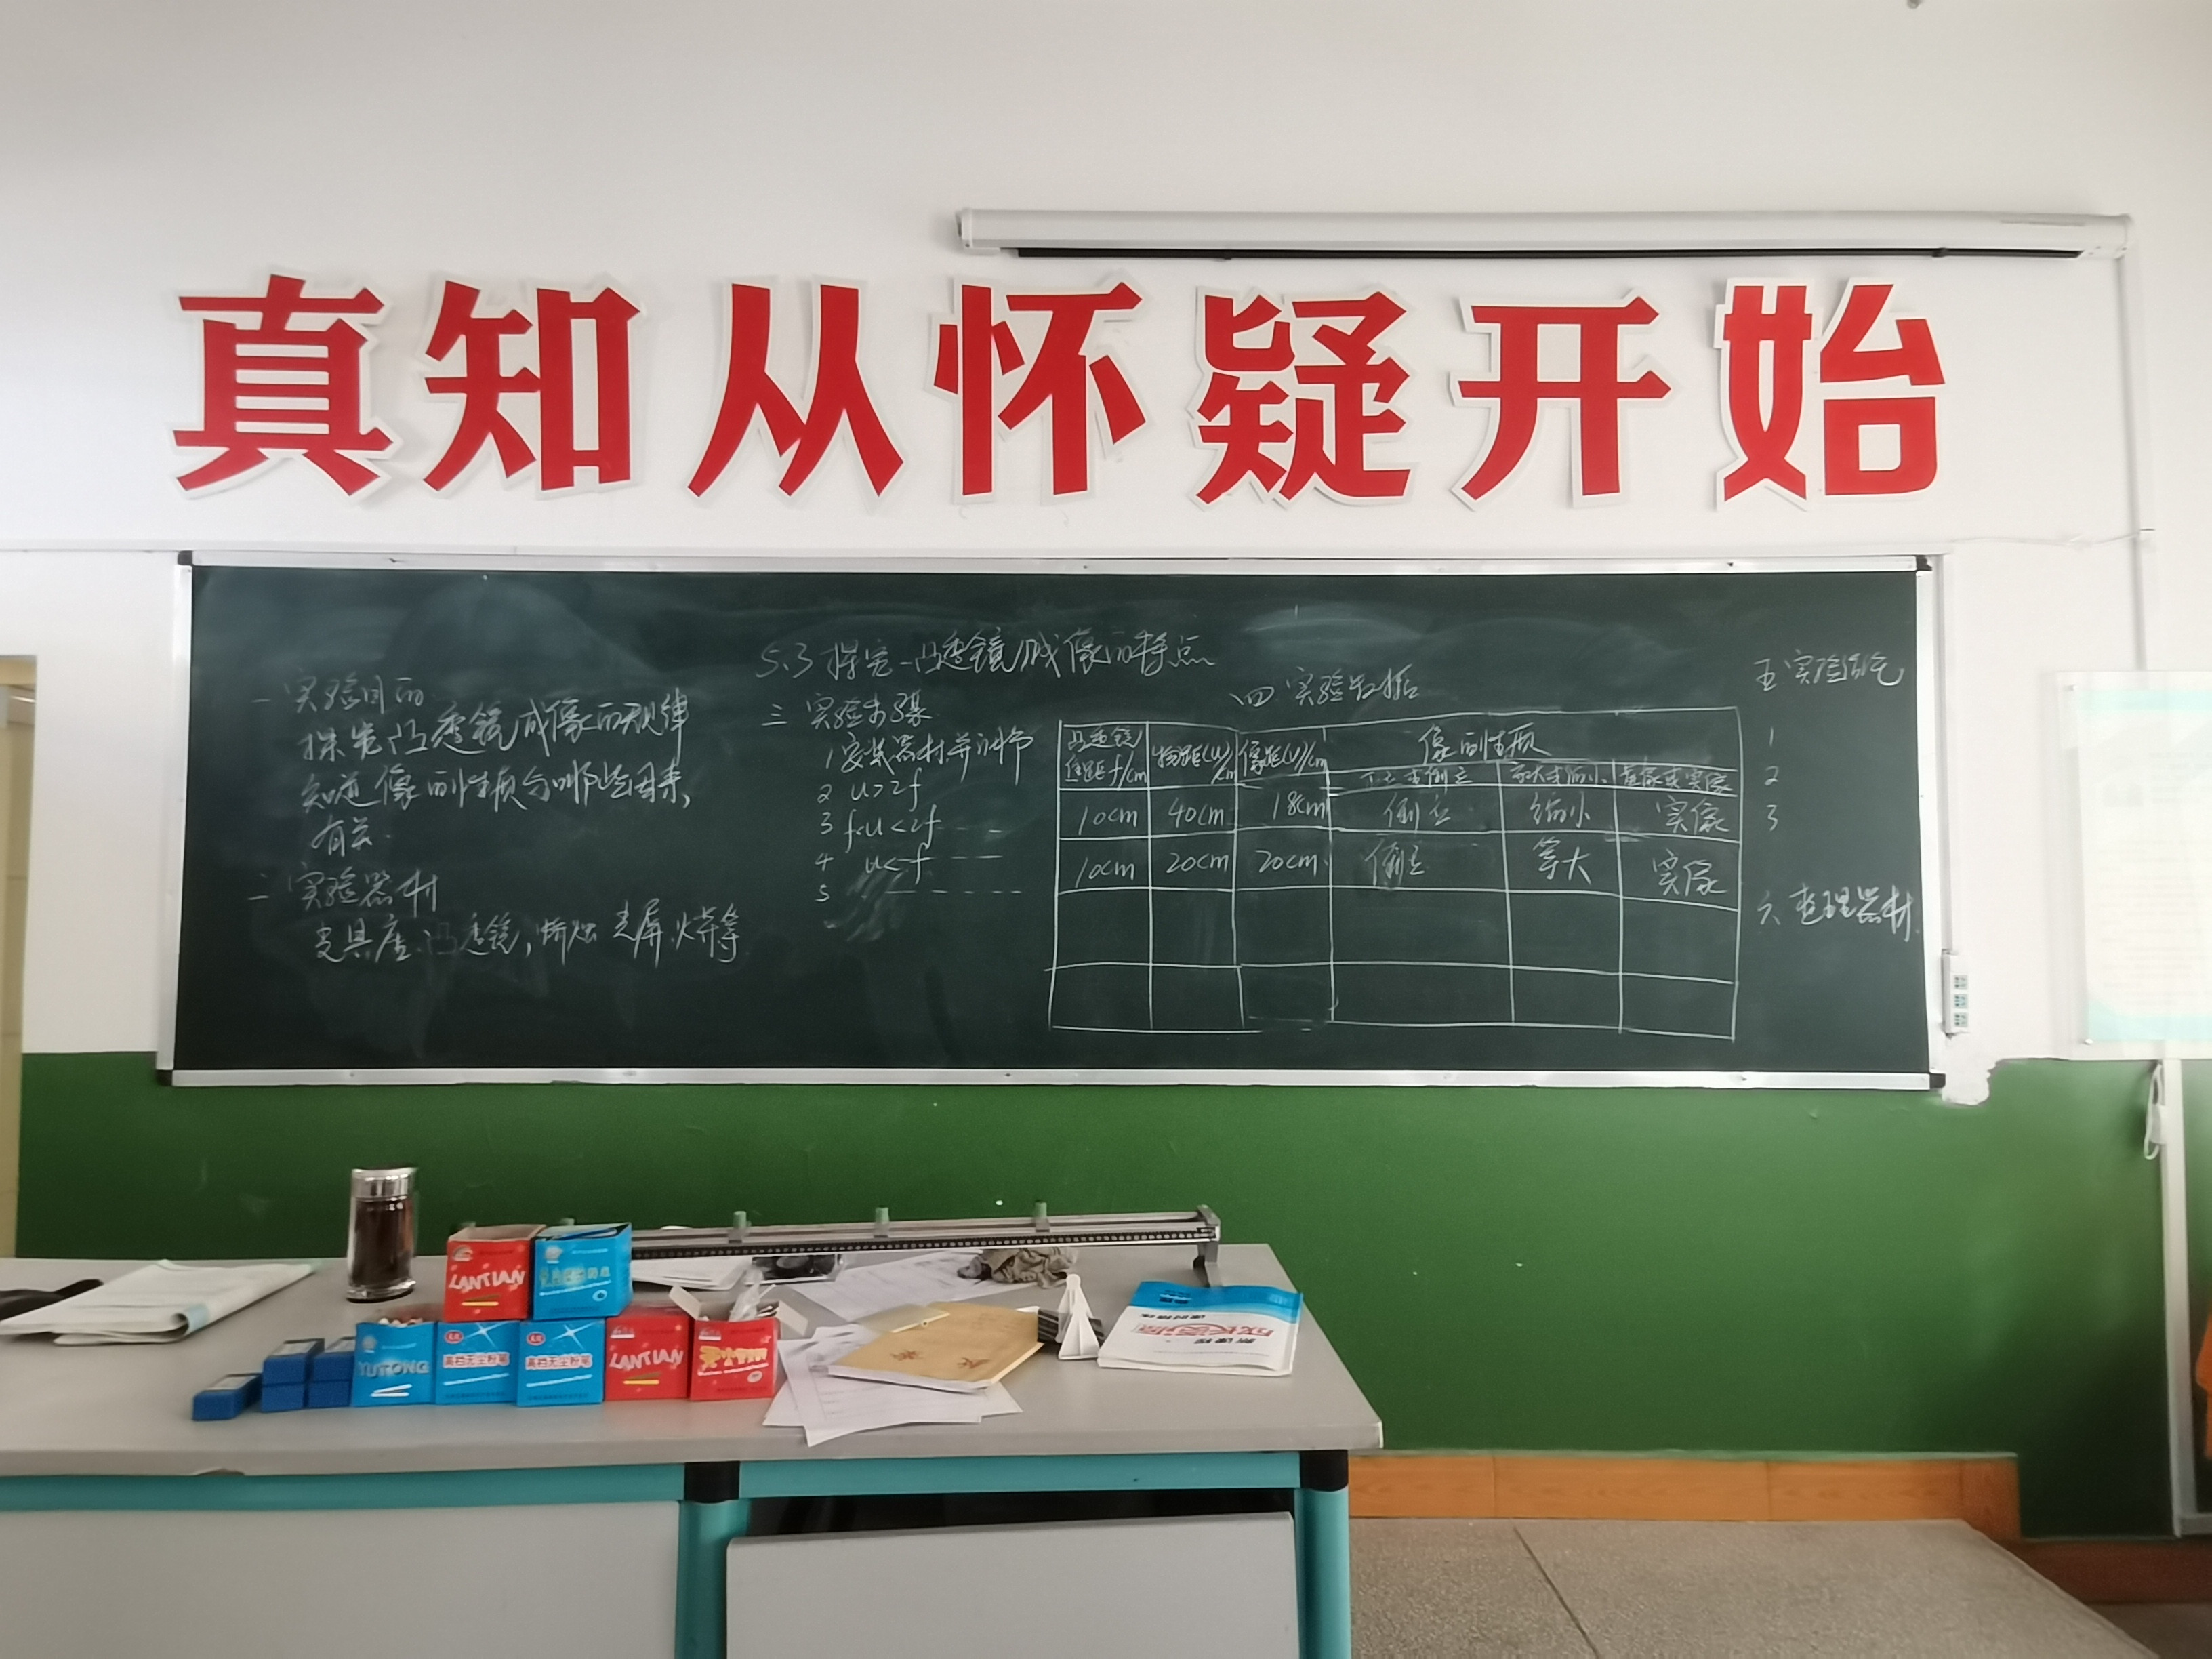 真知从怀疑开始
5.3 探究凸透镜成像的特点
一 实验目的
探究凸透镜成像的规律
知道像的性质与哪些因素,
有关.
二 实验器材
光具座、凸透镜, 蜡烛 光屏、火柴等
三 实验步骤
1 安装器材并调节
2 u>2f
3 f<u<2f
4 u<f
5
四 实验数据
凸透镜焦距f/cm 物距(u)/cm 像距(v)/cm 像的性质
正立或倒立 放大或缩小 虚像或实像
10cm 40cm 18cm 倒立 缩小 实像
10cm 20cm 20cm 倒立 等大 实像
五 实验结论
1
2
3
六 整理器材
LANTIAN
YUTONG
高档无尘粉笔
高档无尘粉笔
LANTIAN
新课程